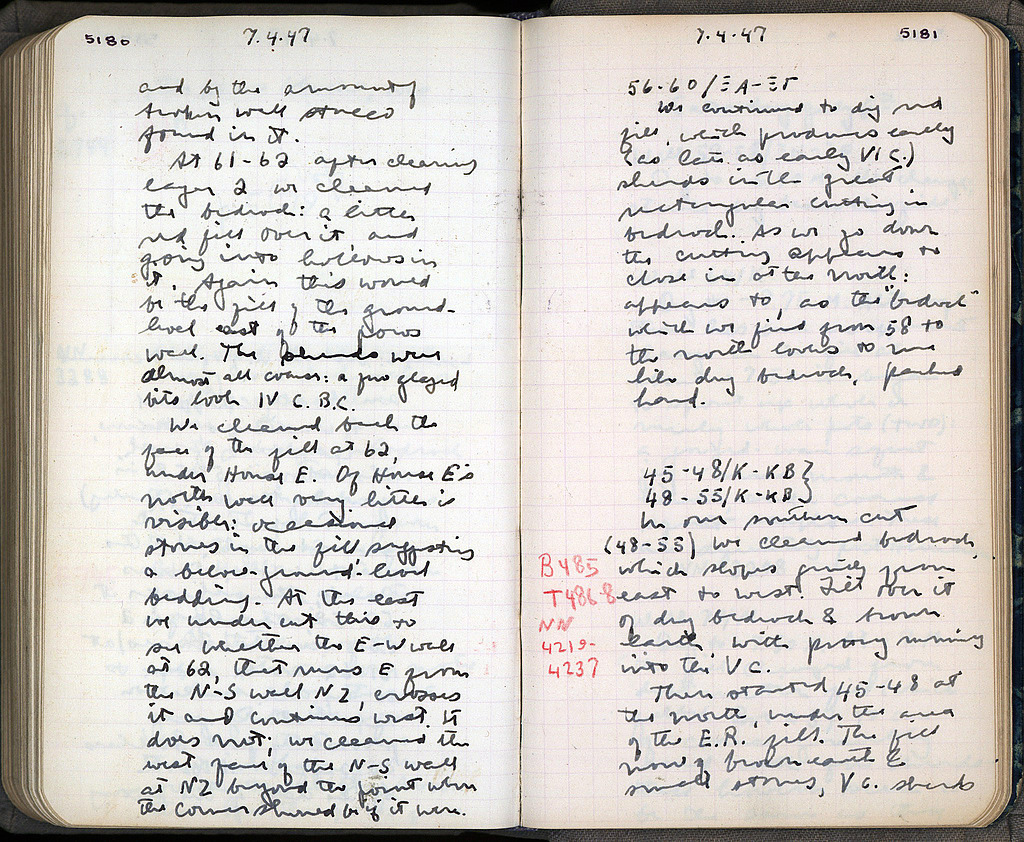 5180
7.4.47
and by the amount of
broken wall stucco
found in it.
At 61-62 after cleaning
layer 2 we cleaned
the bedrock: a little
red fill over it, and
going into hollows in
it. Again this would
be the fill of the ground-
level east of the poros
wall. The sherds were
almost all coarse: a few glazed
bits look IV C. B.C.
We cleaned back the
face of the fill at 62,
under House E. Of House E's
north wall very little is
visible: occasional
stones in the fill, suggesting
a below-ground-level
bedding. At the east
we undercut this to
see whether the E-W wall
at 62, that runs E from
the N-S wall NZ, crosses
it and continues west. It
does not; we cleaned the
west face of the N-S wall
at NZ beyond the point where
the corner should be if it were.
7.4.47
5181
56-60/ΞΑ-ΞΓ
We continued to dig red
fill, which produces early
(as late as early VI C.)
sherds in the great
rectangular cutting in
bedrock. As we go down
the cutting appears to
close in at the north:
appears to, as the "bedrock"
which we find from 58 to
the north looks to me
like dug bedrock, packed
hard.
45-48/Κ-ΚΒ}
48-55/Κ-ΚΒ}
In our southern cut
(48-55) we cleaned bedrock,
which slopes gently from
east to west. Fill over it
of dug bedrock & brown
earth, with pottery running
into the V C.
Then started 45-48 at
the north, under the area
of the E.R. fill. The fill
now of brown earth &
small stones, V C. sherds
B485
T4868
NN
4219-
4237